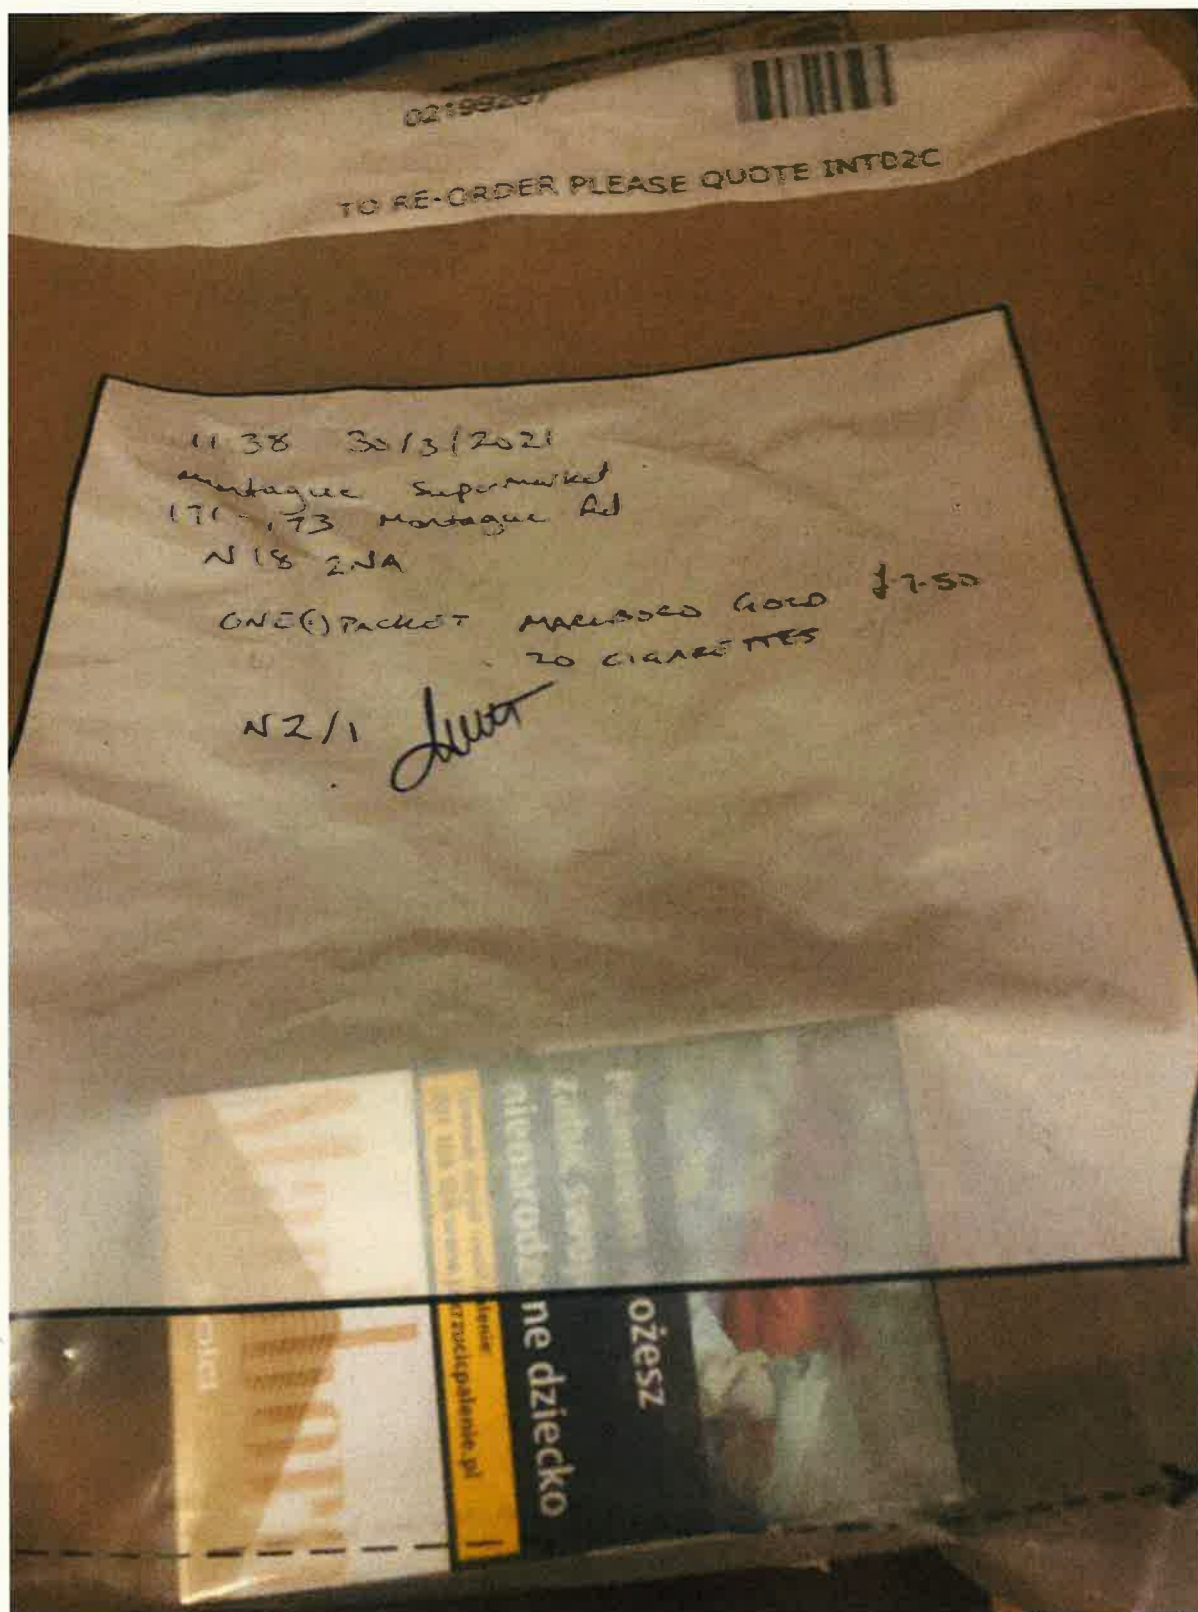 TO RE-ORDER PLEASE QUOTE INTD2C
11 38 30/3/2021
Montague Supermarket
171-173 Montague Rd
N18 2NA
ONE(1) PACKET MARLBORO GOLD £7.50
20 CIGARETTES
NZ/1
ożesz
zabić swoje
nienarodzone dziecko
rzucicpalenie.pl